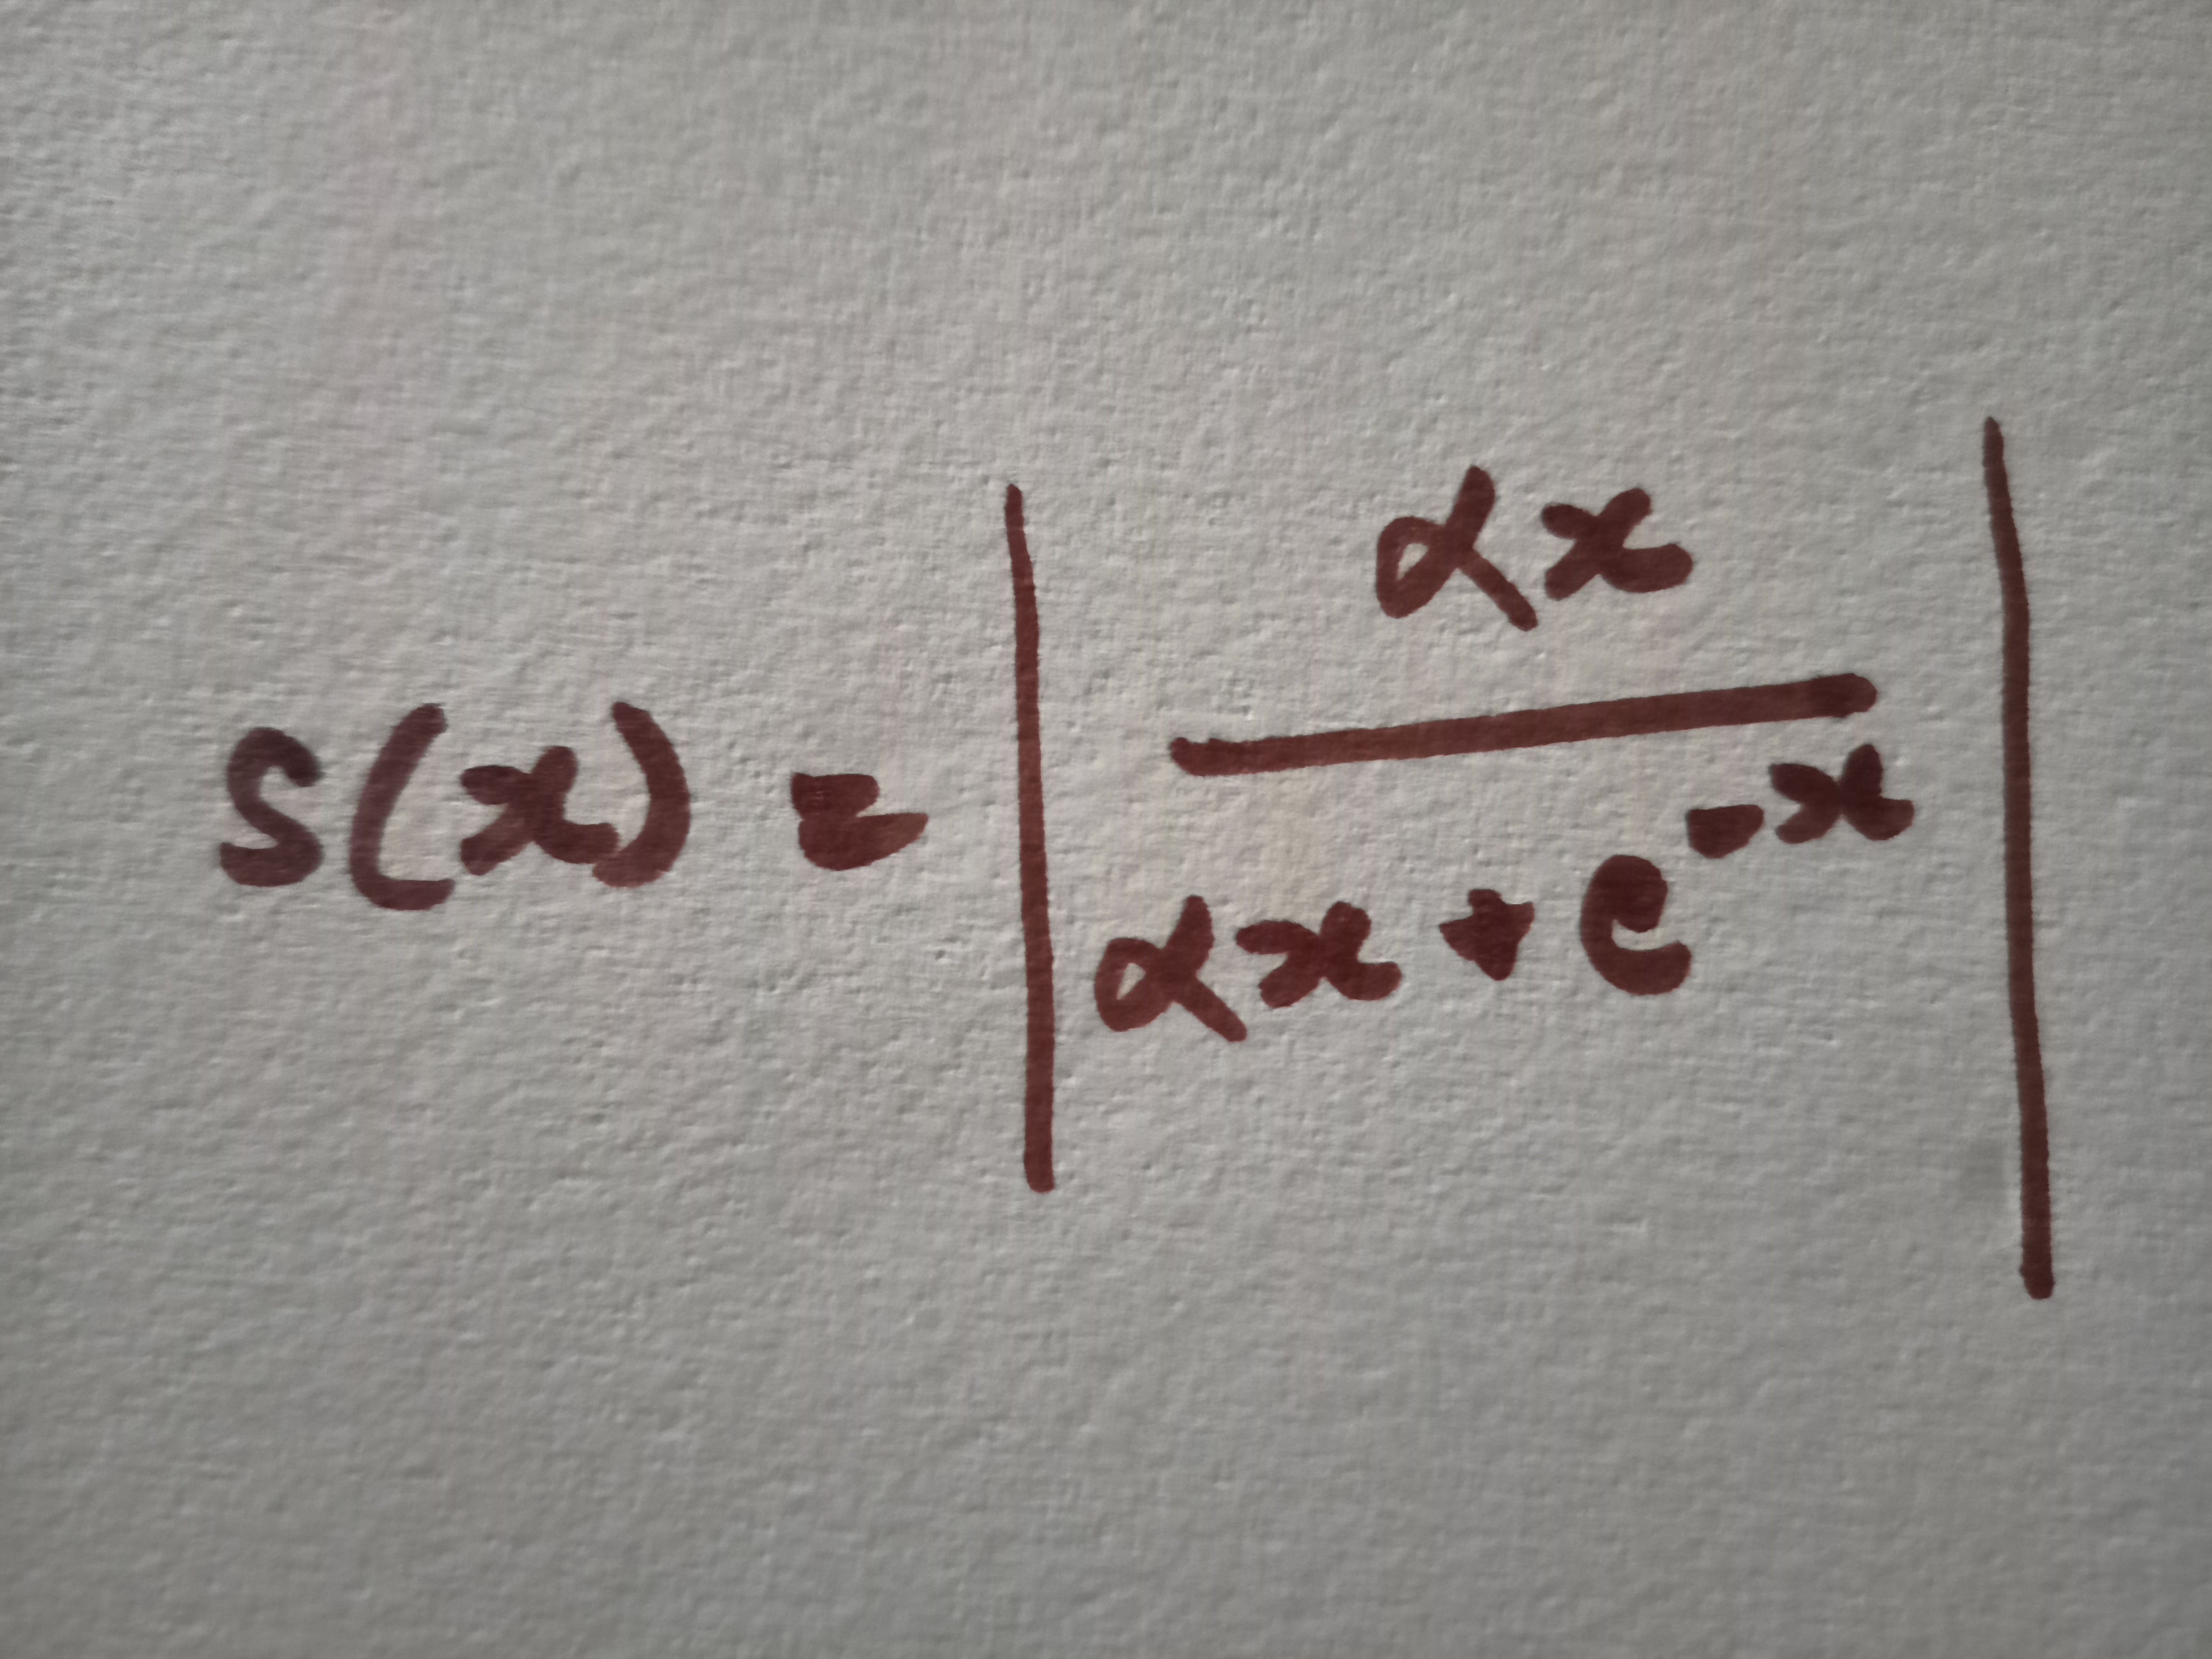 s(x) = | αx / (αx + e^{-x}) |